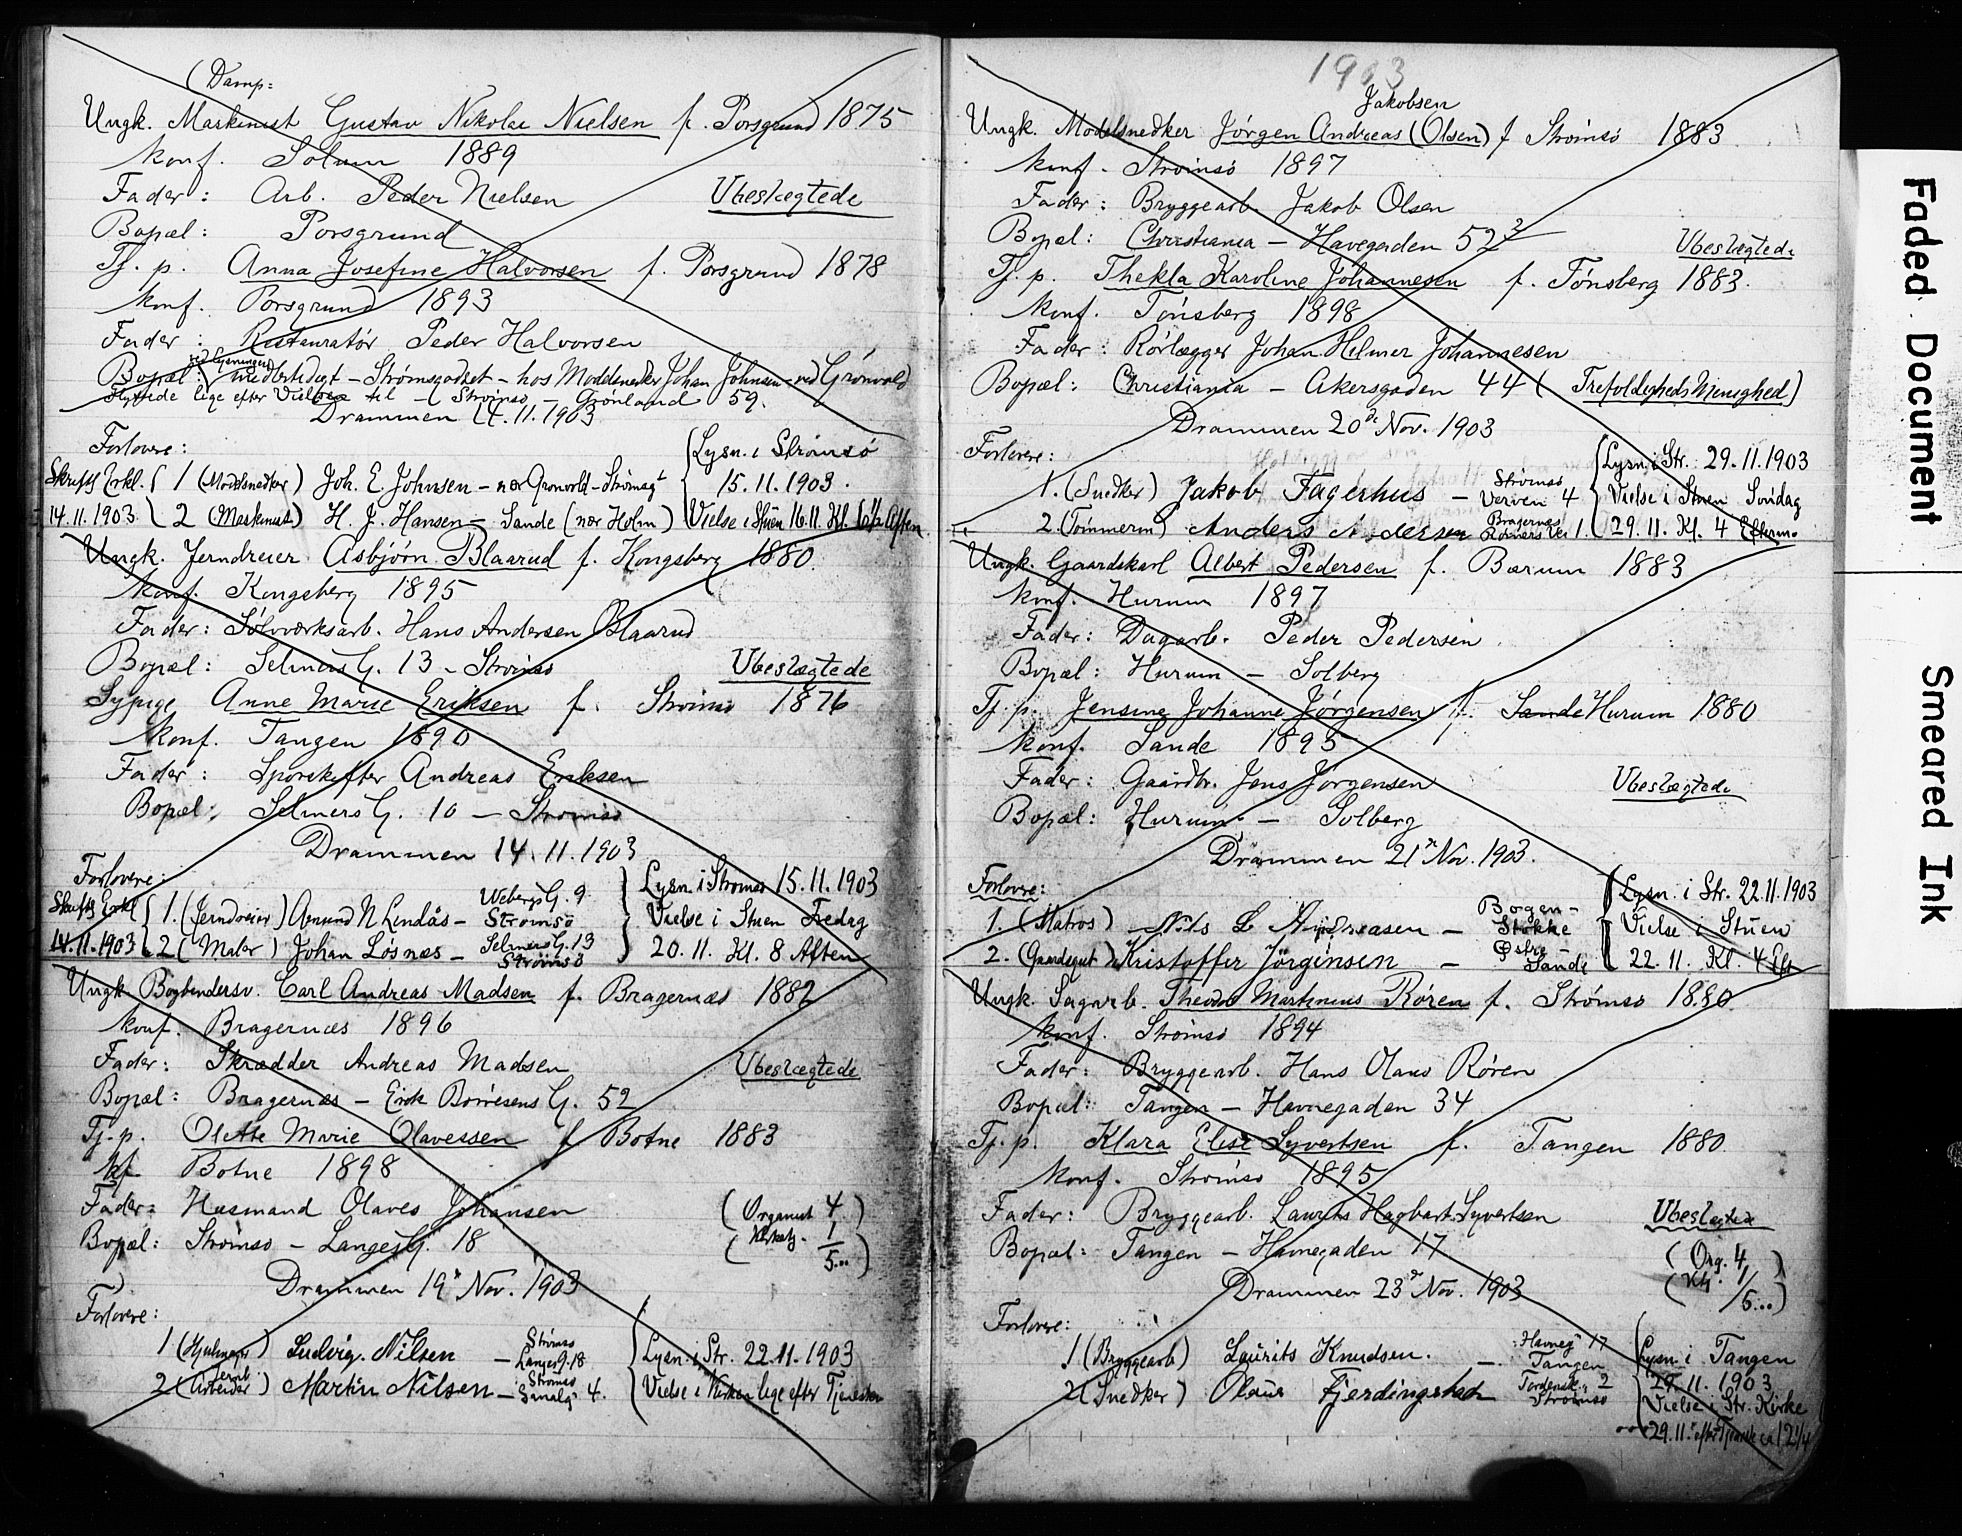 (Damp:
Ungk. Maskinist Gustav Nikolai Nielsen f. Porsgrund 1875
Konf. Solum 1889
Fader: Arb. Peder Nielsen Ubeslægtede
Bopæl: Porsgrund
Tj. p. Anna Josefine Halvorsen f. Porsgrund 1878
Konf. Porsgrund 1893
Fader: Restauratør Peder Halvorsen
ved lysningen
Bopæl: midlertidigt - Strømsgodset - hos Modelsnedker Johan Johnsen - ved Grønvold
flyttede lige efter Vielse til - (Strømsø - Grønland 59.
Drammen 14.11.1903
Forlovere:
Skriftl Erkl. 14.11.1903
1 (Modelsnedker) Joh. E. Johnsen - nær Grønvold - Strømsg
2 (Maskinist) H. J. Hansen - Sande (nær Holm)
Lysn. i Strømsø
15.11.1903.
Vielse i Stuen 16.11. Kl. 6½ Aften
Ungk. Jerndreier Asbjørn Blaarud f. Kongsberg 1880.
Konf. Kongsberg 1895
Fader: Sølvværksarb. Hans Andersen Blaarud
Bopæl: Selmers G. 13 - Strømsø Ubeslægtede
Sypige Anne Marie Eriksen f. Strømsø 1876
Konf. Tangen 1890
Fader: Sporskifter Andreas Eriksen
Bopæl: Selmers G. 10 - Strømsø
Drammen 14.11.1903
Forlovere:
Skriftl Erkl 14.11.1903
1. (Jerndreier) Amund N Lendås - Webergs G. 9 Strømsø
2 (Maler) Johan Løsnæs - Selmers G. 13 Strømsø
Lysn. i Strømsø 15.11.1903
Vielse i Stuen Fredag
20.11. Kl. 8 Aften
Ungk. Bogbindersv. Carl Andreas Madsen f. Bragernæs 1882
Konf. Bragernæs 1896
Fader: Skrædder Andreas Madsen Ubeslægtede
Bopæl: Bragernæs - Erik Børresens G. 52
Tj. p. Olette Marie Olavessen f Botne 1883
kf Botne 1898
Fader: Husmand Olaves Johansen
Bopæl: Strømsø - Langes G. 18
(Organist 4)
1/5...
Drammen 19de Nov. 1903
Forlovere:
1 (Hjulmager) Ludvig. Nilsen - Strømsø Langes G. 18
2 (Jernb. Arbeider) Martin Nilsen - Strømsø 4.
Lysn. i Str. 22.11.1903
Vielse i Kirken lige efter Tjenesten
1903
Jakobsen
Ungk. Modelsnedker Jørgen Andreas (Olsen) f Strømsø 1883
Konf. Strømsø 1897
Fader: Bryggearb. Jakob Olsen
Bopæl: Christiania - Havegaden 52
Ubeslægtede
Tj. p. Thekla Karoline Johannesen f. Tønsberg 1883.
Konf. Tønsberg 1898
Fader: Rørlægger Johan Hilmer Johannesen
Bopæl: Christiania - Akersgaden 44 (Trefoldigheds Menighed)
Drammen 20de Nov. 1903
Forlovere:
1. (Snedker) Jakob Fagerhus - Strømsø Verven 4
2. (Tømmerm) Anders Andersen Bragernæs 1.
Lysn. i Str. 29.11.1903
Vielse i Stuen Søndag
29.11. Kl. 4 Efterm.
Ungk. Gaardskarl Albert Pedersen f. Bærum 1883
Konf. Hurum 1897
Fader: Dagarb. Peder Pedersen
Bopæl: Hurum - Solberg
Tj. p. Jensine Johanne Jørgensen f. Sande Hurum 1880
Konf. Sande 1895
Fader: Gaardbr. Jens Jørgensen Ubeslægtede
Bopæl: Hurum - Solberg
Drammen 21de Nov. 1903.
Forlovere:
1. (Matros) Nils L Andreasen - Bogen - Stokke
2. (Gaardsgut) Kristoffer Jørginsen - Østre - Sande
Lysn. i Str. 22.11.1903
Vielse i Stuen
22.11. Kl. 4 Eft
Ungk. Sagarb. Theodor Martinius Røren f. Strømsø 1880.
Konf. Strømsø 1894
Fader: Bryggearb. Hans Olaus Røren
Bopæl: Tangen - Havnegaden 34
Tj. p. Klara Elise Syvertsen f. Tangen 1880.
Konf. Strømsø 1895
Fader: Bryggearb. Laurits Hagbart Syvertsen Ubeslægtede
Bopæl: Tangen - Havnegaden 17
(Org. 4)
1/5...)
Drammen 23de Nov. 1903
Forlovere:
1 (Bryggearb) Laurits Knudsen. - Havneg 17 Tangen
2 (Snedker) Olaus Fjerdingstad Tordensk. 2 Strømsø
Lysn. i Tangen
29.11.1903
Vielse i Str. Kirke
29.11. efter Tjeneste ca 12¼
Faded Document
Smeared Ink